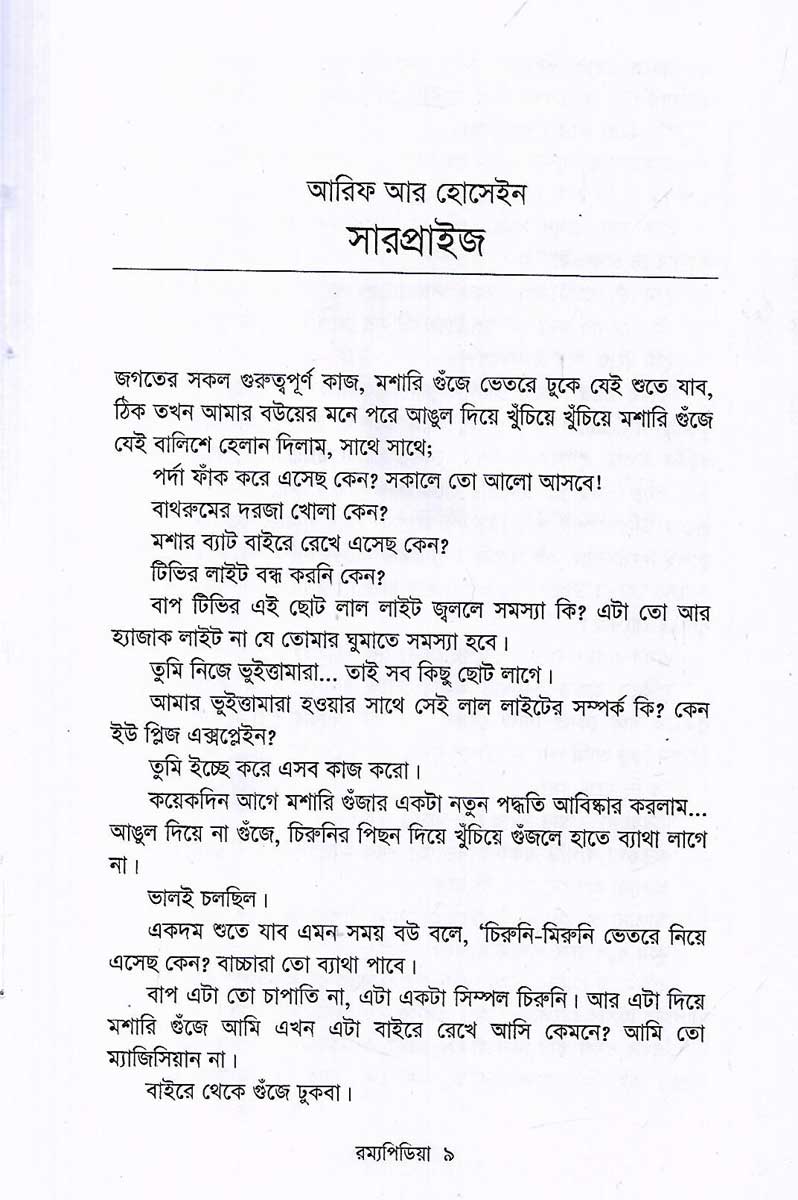 আরিফ আর হোসেইন
সারপ্রাইজ
জগতের সকল গুরুত্বপূর্ণ কাজ, মশারি গুঁজে ভেতরে ঢুকে যেই শুতে যাব,
ঠিক তখন আমার বউয়ের মনে পরে আঙুল দিয়ে খুঁচিয়ে খুঁচিয়ে মশারি গুঁজে
যেই বালিশে হেলান দিলাম, সাথে সাথে;
পর্দা ফাঁক করে এসেছ কেন? সকালে তো আলো আসবে!
বাথরুমের দরজা খোলা কেন?
মশার ব্যাট বাইরে রেখে এসেছ কেন?
টিভির লাইট বন্ধ করনি কেন?
বাপ টিভির এই ছোট লাল লাইট জ্বললে সমস্যা কি? এটা তো আর
হ্যাজাক লাইট না যে তোমার ঘুমাতে সমস্যা হবে।
তুমি নিজে ভুইত্তামারা... তাই সব কিছু ছোট লাগে।
আমার ভুইত্তামারা হওয়ার সাথে সেই লাল লাইটের সম্পর্ক কি? কেন
ইউ প্লিজ এক্সপ্লেইন?
তুমি ইচ্ছে করে এসব কাজ করো।
কয়েকদিন আগে মশারি গুঁজার একটা নতুন পদ্ধতি আবিষ্কার করলাম...
আঙুল দিয়ে না গুঁজে, চিরুনির পিছন দিয়ে খুঁচিয়ে গুঁজলে হাতে ব্যাথা লাগে
না।
ভালই চলছিল।
একদম শুতে যাব এমন সময় বউ বলে, ‘চিরুনি-মিরুনি ভেতরে নিয়ে
এসেছ কেন? বাচ্চারা তো ব্যাথা পাবে।
বাপ এটা তো চাপাতি না, এটা একটা সিম্পল চিরুনি। আর এটা দিয়ে
মশারি গুঁজে আমি এখন এটা বাইরে রেখে আসি কেমনে? আমি তো
ম্যাজিসিয়ান না।
বাইরে থেকে গুঁজে ঢুকবা।
রম্যপিডিয়া ৯